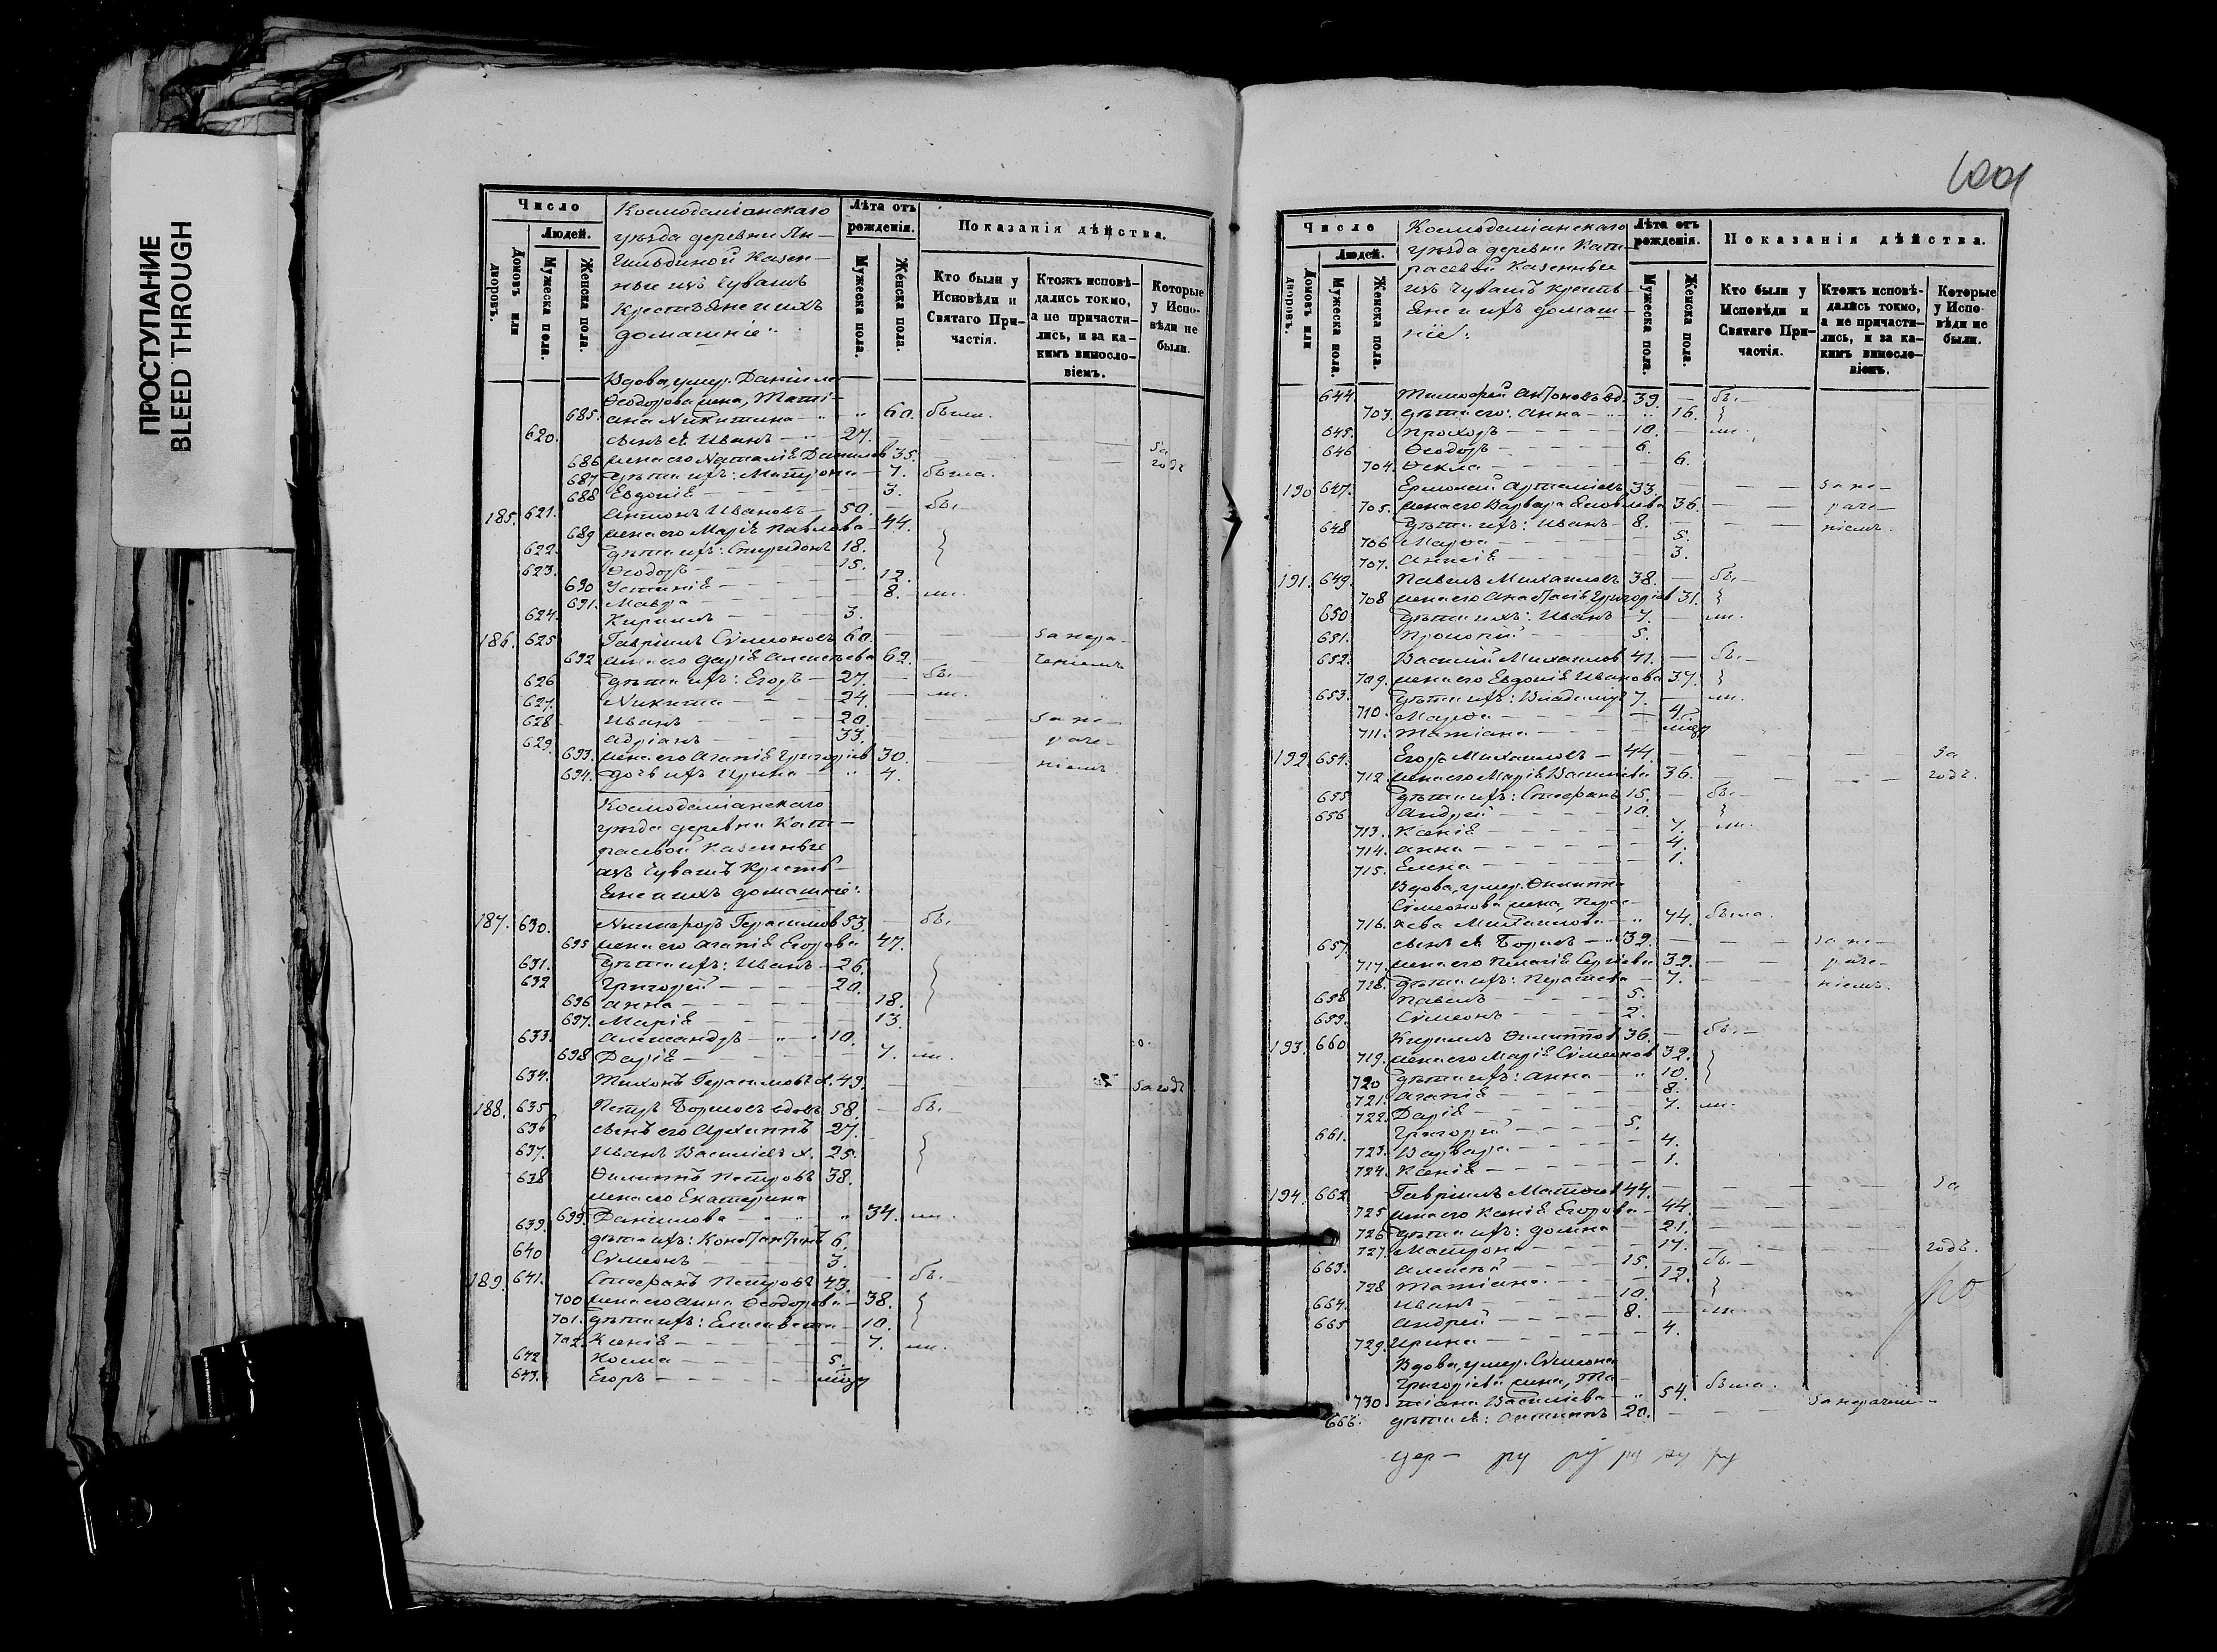 ПРОСТУПАНИЕ
BLEED THROUGH
Число
Людей.
Домовъ или дворовъ.
Мужеска пола.
Женска пола.
Космодемiанскаго
уѣзда деревни Ян-
гильдиной Казен-
ные изъ Чувашъ
Крестьяне и ихъ
домашнiе:
Лѣта отъ рожденiя.
Мужеска пола.
Женска пола.
Показанiя дѣйства.
Кто были у Исповѣди и Святаго Причастiя.
Ктожъ исповѣдались токмо, а не причастились, и за какимъ винословiемъ.
Которые у Исповѣди не были.
Вдова, умер. Данiила
Ѳеодорова жена, Татi-
685. ана Никитина 60. была.
620. сынъ ея Иванъ 27. за
686 жена его Наталiя Данилов 35. годъ
687 дѣти ихъ: Матрона 7. была.
688 Евдокiя 3.
185. 621. Антонъ Ивановъ 50. бы.
689 жена его Марiя Павлова 44.
622. дѣти ихъ: Спиридонъ 18.
623. Ѳеодоръ 15.
690 Устинiя 12.
691. Мавра 8. ли.
624. Кириллъ 3.
186. 625 Гаврiилъ Сѵмеоновъ 60. за нера-
692 жена его Дарiя Алексѣева 62. ченiемъ
626 дѣти ихъ: Егоръ 27. бы-
627. Никита 24. ли.
628 Иванъ 20. за не-
629. Адрiанъ 33. раче-
693. жена его Агапiя Григорiев 30. нiемъ.
694. дочь ихъ Ирина 4.
Космодемiанскаго
уѣзда деревни Кат-
расевой Казенные
изъ Чувашъ Кресть-
яне и ихъ домашнiе:
187. 630. Никифоръ Герасимов 53. бы.
695 жена его Агапiя Егорова 47.
631. дѣти ихъ: Иванъ 26.
632 Григорiй 20.
696 Анна 18.
697. Марiя 13.
633. Александръ 10.
698 Дарiя 7. ли.
634. Тихонъ Герасимовъ х. 49. за годъ
188. 635 Петръ Борисовъ вдовъ 58. бы.
636 сынъ его Архиппъ 27.
637. Иванъ Васильевъ х. 25.
638 Филиппъ Петровъ 38.
жена его Екатерина
699. Данiилова 34. ли.
639. дѣти ихъ: Константинъ 6.
640 Сѵмеонъ 3.
189. 641. Стефанъ Петровъ 43. бы.
700 жена его Анна Ѳеодорова 38.
701. дѣти ихъ: Елисавета 10.
702. Ксенiя 7. ли.
642 Косма 5.
643. Егоръ
Число
Людей.
Домовъ или дворовъ.
Мужеска пола.
Женска пола.
Космодемiанскаго
уѣзда деревни Кат-
расевой Казенные
изъ Чувашъ Кресть-
яне и ихъ домаш-
нiе:
Лѣта отъ рожденiя.
Мужеска пола.
Женска пола.
Показанiя дѣйства.
Кто были у Исповѣди и Святаго Причастiя.
Ктожъ исповѣдались токмо, а не причастились, и за какимъ винословiемъ.
Которые у Исповѣди не были.
644 Тимофей Антоновъ вд. 39. бы.
703. дѣти его: Анна 16.
645. Прохоръ 10. ли.
646 Ѳеодоръ 6.
704. Ѳекла 6.
190 647. Ермолай Артемiевъ 33. за не-
705. жена его Варвара Яковлева 36. раче-
648 дѣти ихъ: Иванъ 8. нiемъ.
706 Марѳа 5.
707. Аннiя 3.
191. 649. Павелъ Михаиловъ 38. бы-
708 жена его Анастасiя Григорiев 31.
650 дѣти ихъ: Иванъ 7. ли.
651. Прокопiй 5.
652. Василiй Михаилов 41. бы.
709. жена его Евдокiя Иванова 37.
653. дѣти ихъ: Владимiръ 7. ли.
710. Марѳа 4.
711. Татiана
192 654. Егоръ Михаиловъ 44. за
712. жена его Марiя Василiева 36. годъ.
655 дѣти ихъ: Стефанъ 15. бы-
656 Андрей 10.
713. Ксенiя 7. ли.
714. Анна 4.
715. Елена 1.
Вдова, умер. Филиппа
Сѵмеонова жена, Парас-
716. кева Михаилова 74. была.
657. сынъ ея Борисъ 39. за не-
717. жена его Пелагiя Сергiева 32. раче-
718. дѣти ихъ: Параскева 7. нiемъ.
658 Павелъ 5.
659. Сѵмеонъ 2.
193. 660 Кириллъ Филиппов 36. бы.
719. жена его Марiя Сѵмеонов 32.
720 дѣти ихъ: Анна 10.
721. Агапiя 8.
722. Дарiя 7. ли.
661. Григорiй 5.
723. Варвара 4.
724. Ксенiя 1.
194. 662. Гаврiилъ Матѳеев 44. за
725 жена его Ксенiя Егорова 44.
726 дѣти ихъ: Домна 21.
727. Матрона 17. годъ.
663. Алексѣй 15. бы-
728 Татiана 12.
664. Иванъ 10.
665 Андрей 8. ли.
729. Ирина 4.
Вдова, умер. Сѵмеона
Григорiева жена, Та-
730 тiана Василiева 54. была.
666. дѣти ея: Антипъ 20. за нерачен-